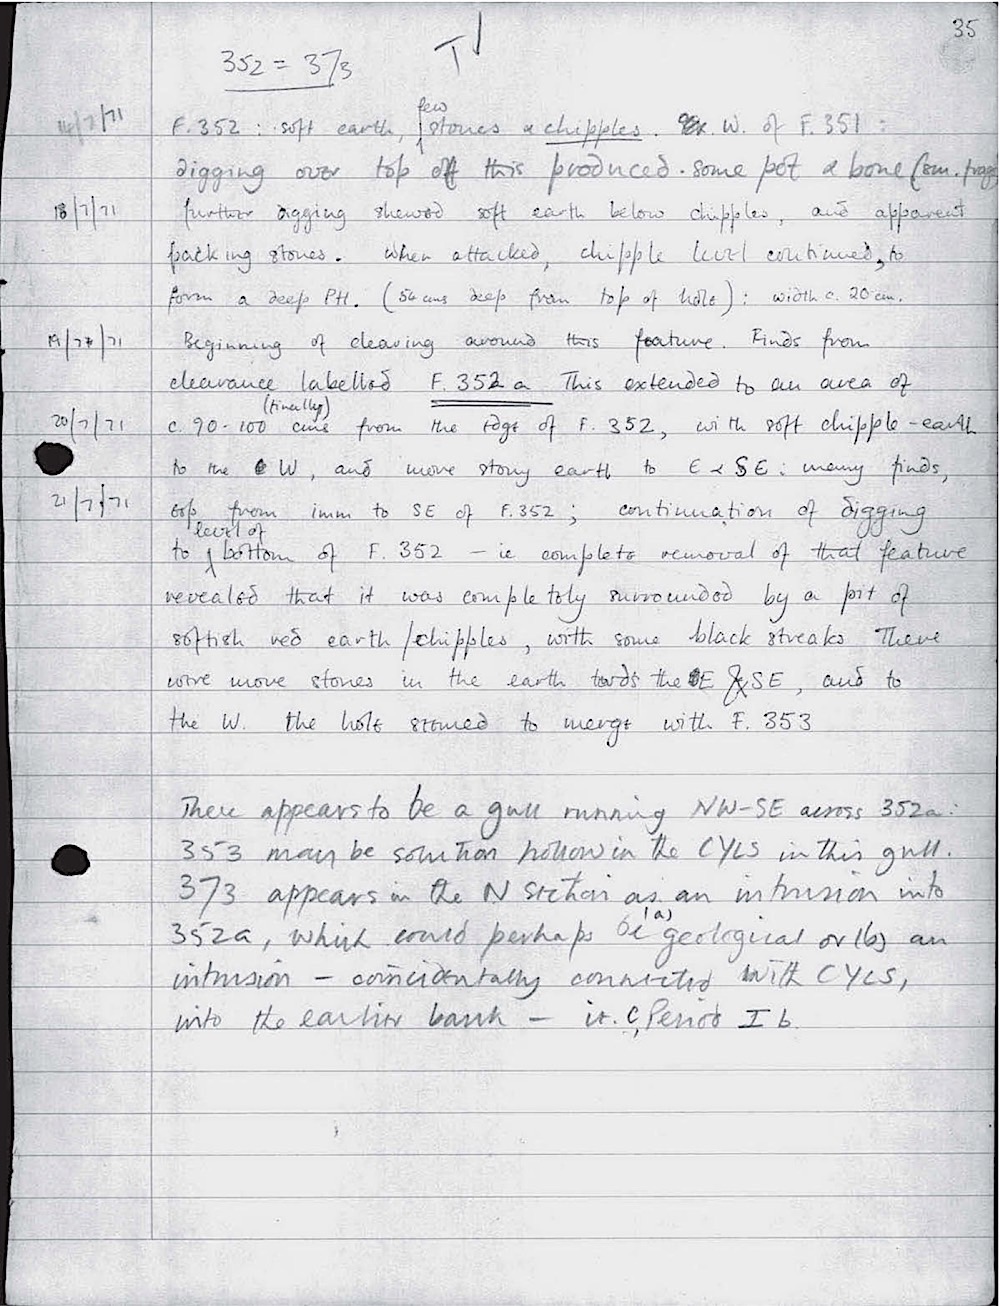 35
352 = 373
T
14/7/71 F.352 : soft earth, few stones & chipples. W. of F. 351 :
digging over top off this produced some pot & bone (sm. frags
18/7/71 further digging shewed soft earth below chipples, and apparent
packing stones. When attacked, chipple level continued, to
form a deep PH. (54 cms deep from top of hole) : width c. 20 cm.
19/7/71 Beginning of clearing around this feature. Finds from
clearance labelled F. 352 a This extended to an area of
20/7/71 c. 90-100 (finally) cms from the edge of F. 352, with soft chipple-earth
to the W, and more stony earth to E & SE : many finds,
21/7/71 esp from imm to SE of F.352 ; continuation of digging
to level of bottom of F. 352 – ie complete removal of that feature
revealed that it was completely surrounded by a pit of
softish red earth/chipples, with some black streaks There
were more stones in the earth tords the E & SE, and to
the W. the hole seemed to merge with F. 353
There appears to be a gull running NW-SE across 352a.
353 may be solution hollow in the CYLS in this gull.
373 appears in the N section as an intrusion into
352a, which could perhaps be (a) geological or (b) an
intrusion – coincidentally connected with CYLS,
into the earlier bank – ie. C, Period I b.